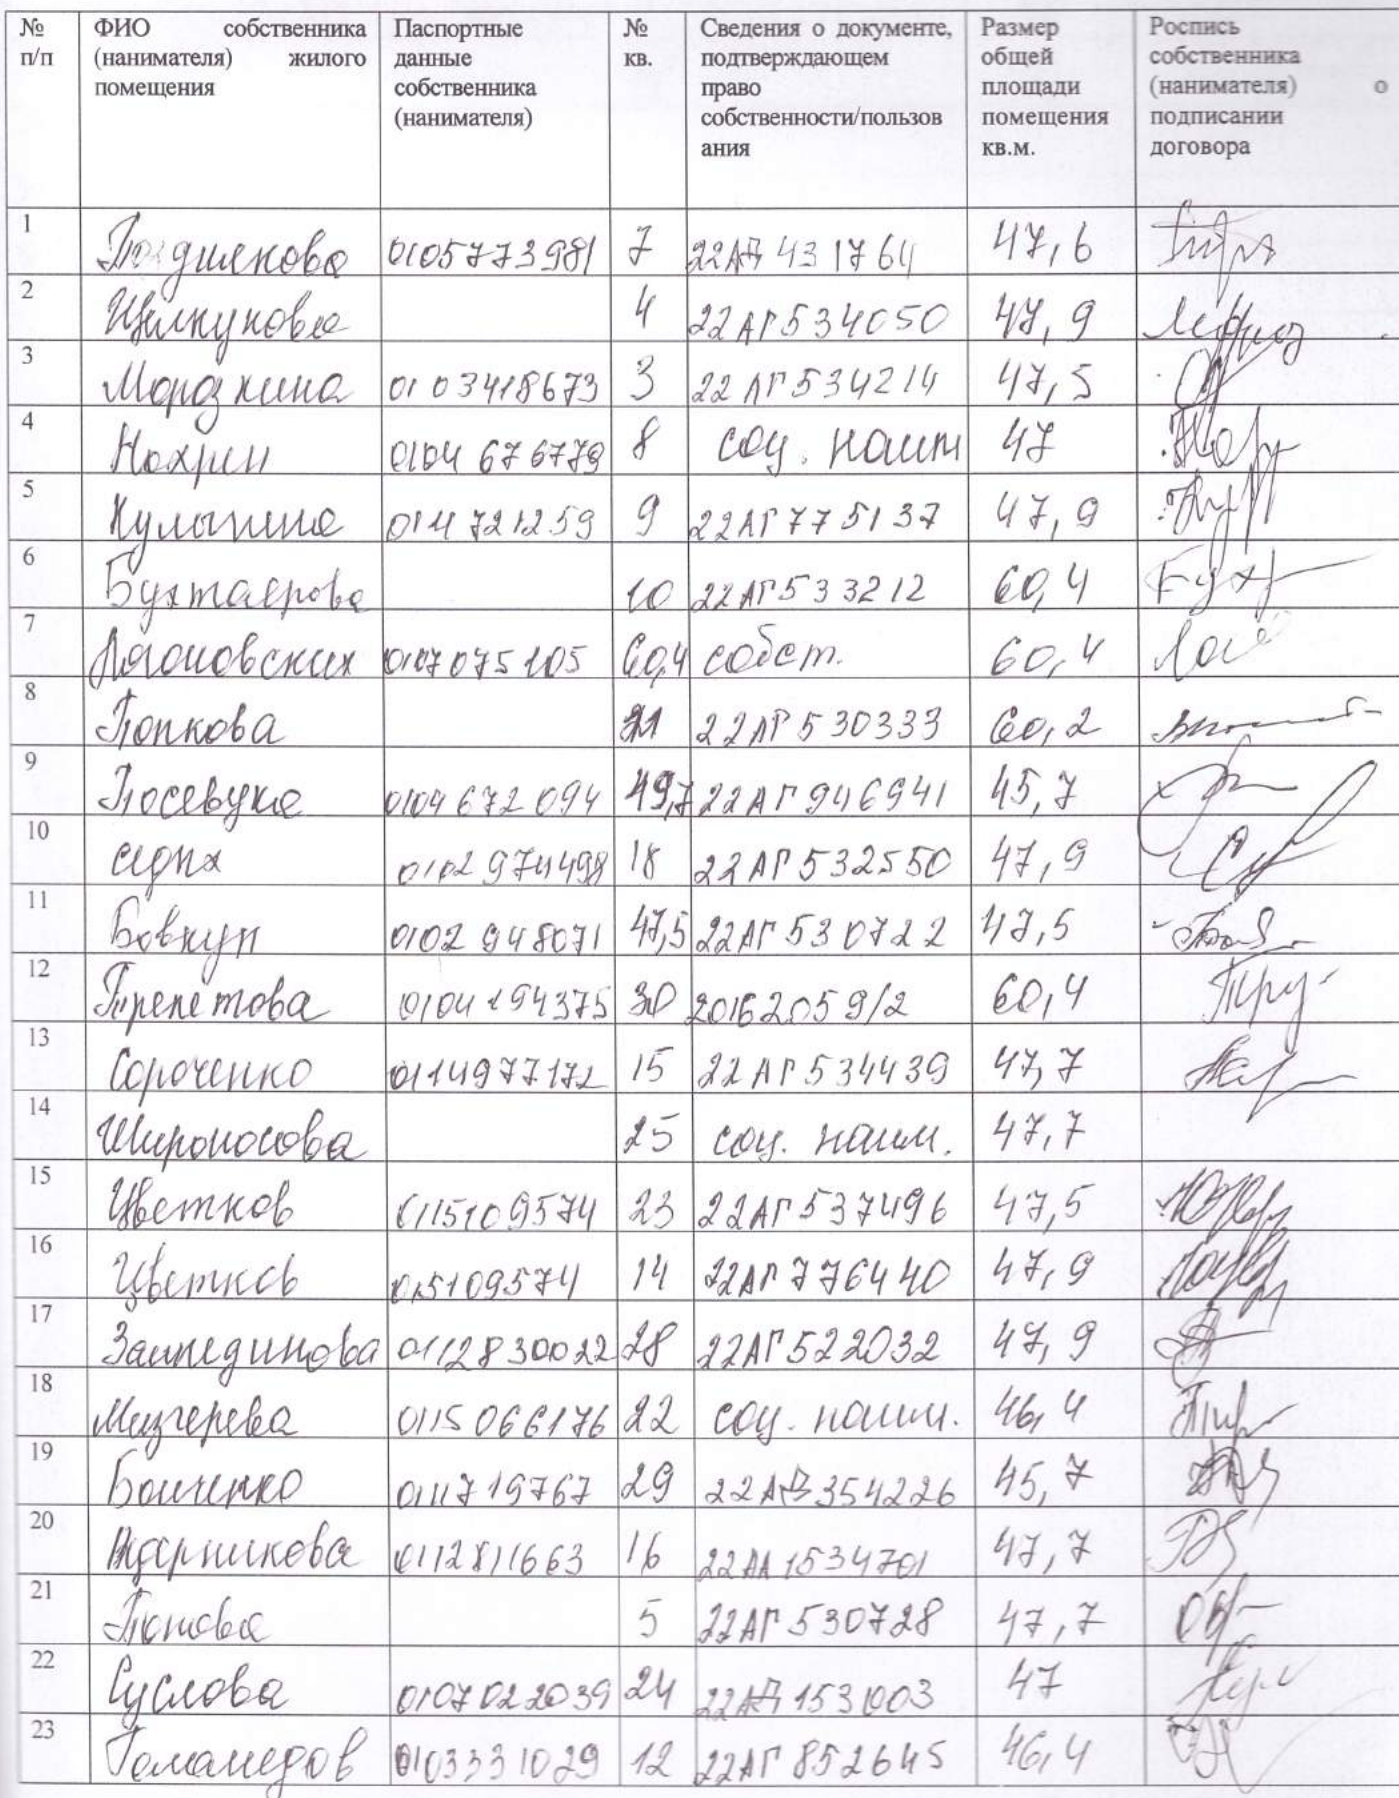 № п/п | ФИО собственника (нанимателя) жилого помещения | Паспортные данные собственника (нанимателя) | № кв. | Сведения о документе, подтверждающем право собственности/пользования | Размер общей площади помещения кв.м. | Роспись собственника (нанимателя) о подписании договора
1 0105773981 7 22АД 431764 47,6
2 Щелкунова 4 22АГ534050 47,9
3 0103418673 3 22АГ534214 47,5
4 Нохрин 0104 676779 8 соц. найм 47
5 Кулынина 0147 721259 9 22АГ775137 47,9
6 10 22АГ533212 60,4
7 0107075105 60,4 собст. 60,4
8 Попкова 22АГ530333 60,2
9 0104 672 094 49,7 22АГ946941 45,7
10 0102 974498 18 22АГ532550 47,9
11 Бовкун 0102 948071 47,5 22АГ530722 47,5
12 Трепетова 0104 194375 30 20162059/2 60,4
13 Сороченко 0114977172 15 22АГ534439 47,7
14 25 соц. найм. 47,7
15 Цветков 0115109574 23 22АГ537496 47,5
16 Цветков 015109574 14 22АГ776440 47,9
17 0112830022 28 22АГ522032 47,9
18 Мизгерева 0115066176 22 соц. найм. 46,4
19 Бойченко 0111719767 29 22АВ354226 45,7
20 0112811663 16 22АА1534701 47,7
21 Попова 5 22АГ530728 47,7
22 Суслова 0107022039 24 22АД153003 47
23 0103331029 12 22АГ852645 46,4